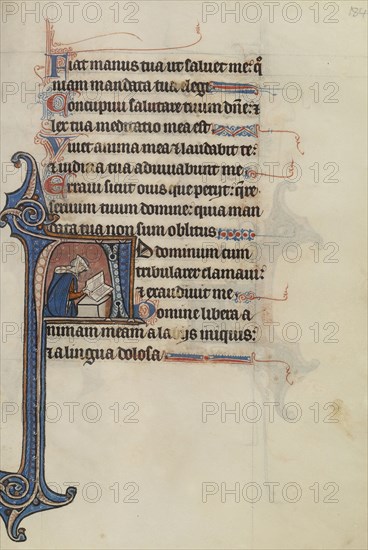 184
Fiat manus tua ut saluet me: qm̄
niam mandata tua elegi
Concupiui salutare tuum dn̄e: &
lex tua meditatio mea est
Viuet anima mea & laudabit te:
& iudicia tua adiuuabunt me
Erraui sicut ouis que perijt: q̄re
seruum tuum domine: quia man
data tua non sum oblitus
Ad dominum cum
tribularer clamaui:
& exaudiuit me
Domine libera a
nimam meam a labijs iniquis:
& a lingua dolosa
PHOTO12